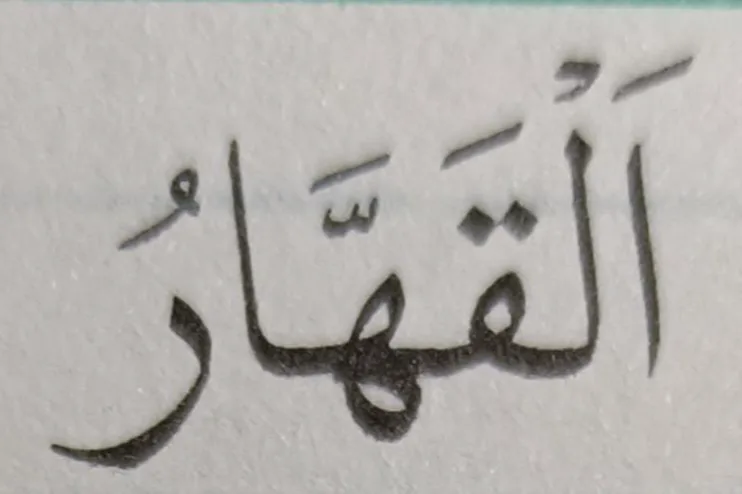 اَلْقَهَّارُ